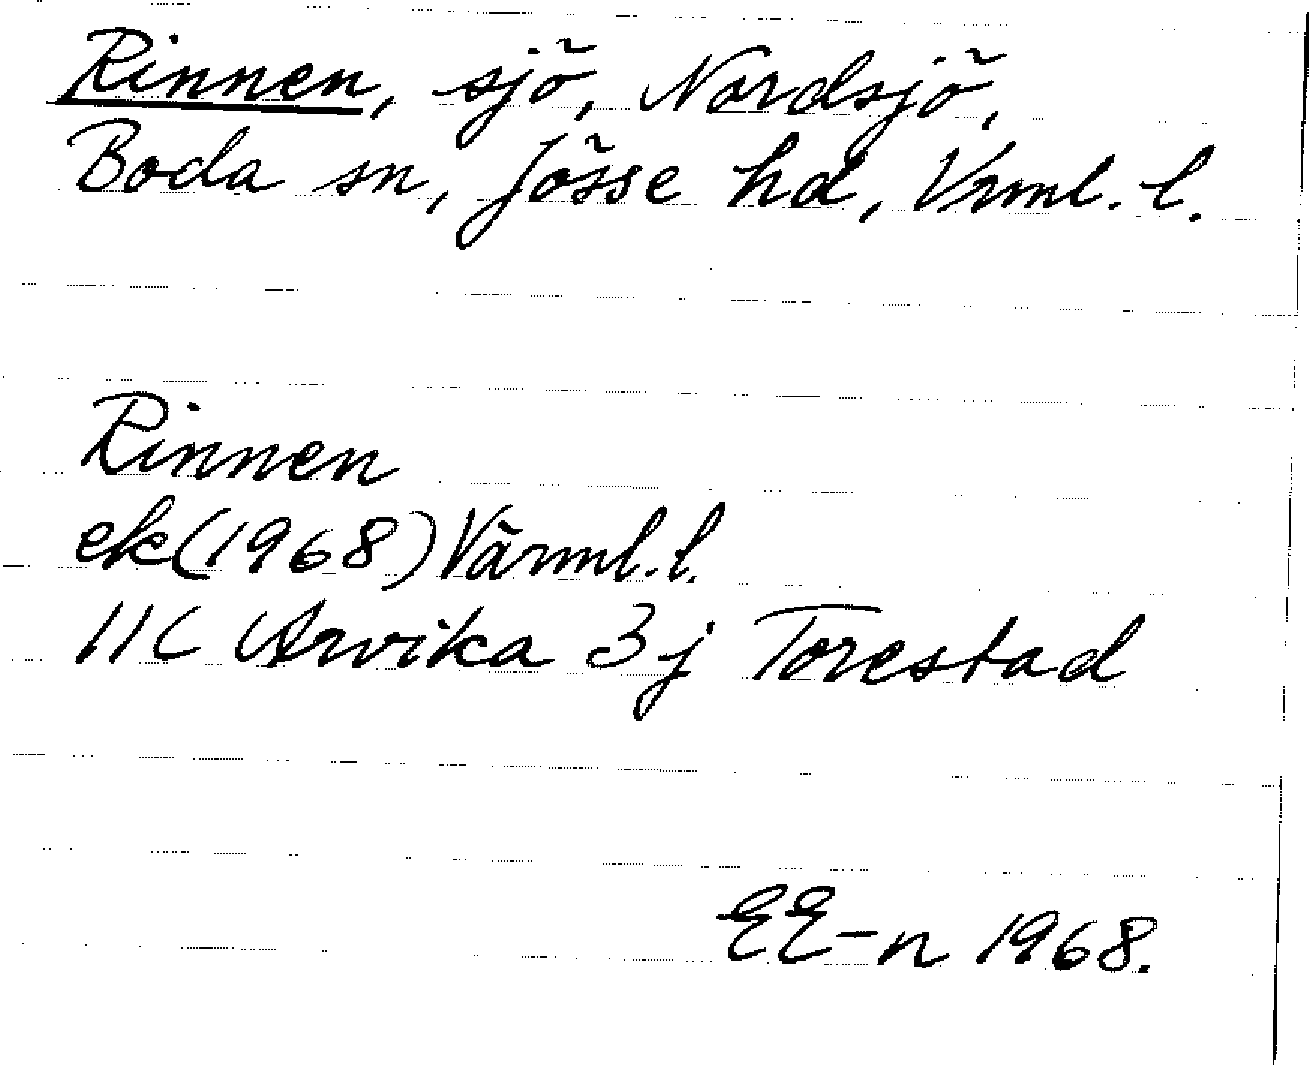 Rinnen, sjö, Nordsjö,
Boda sn, Jösse hd, Vrml. l.
Rinnen
ek(1968) Värml. l.
11C Arvika 3j Torestad
EE-n 1968.